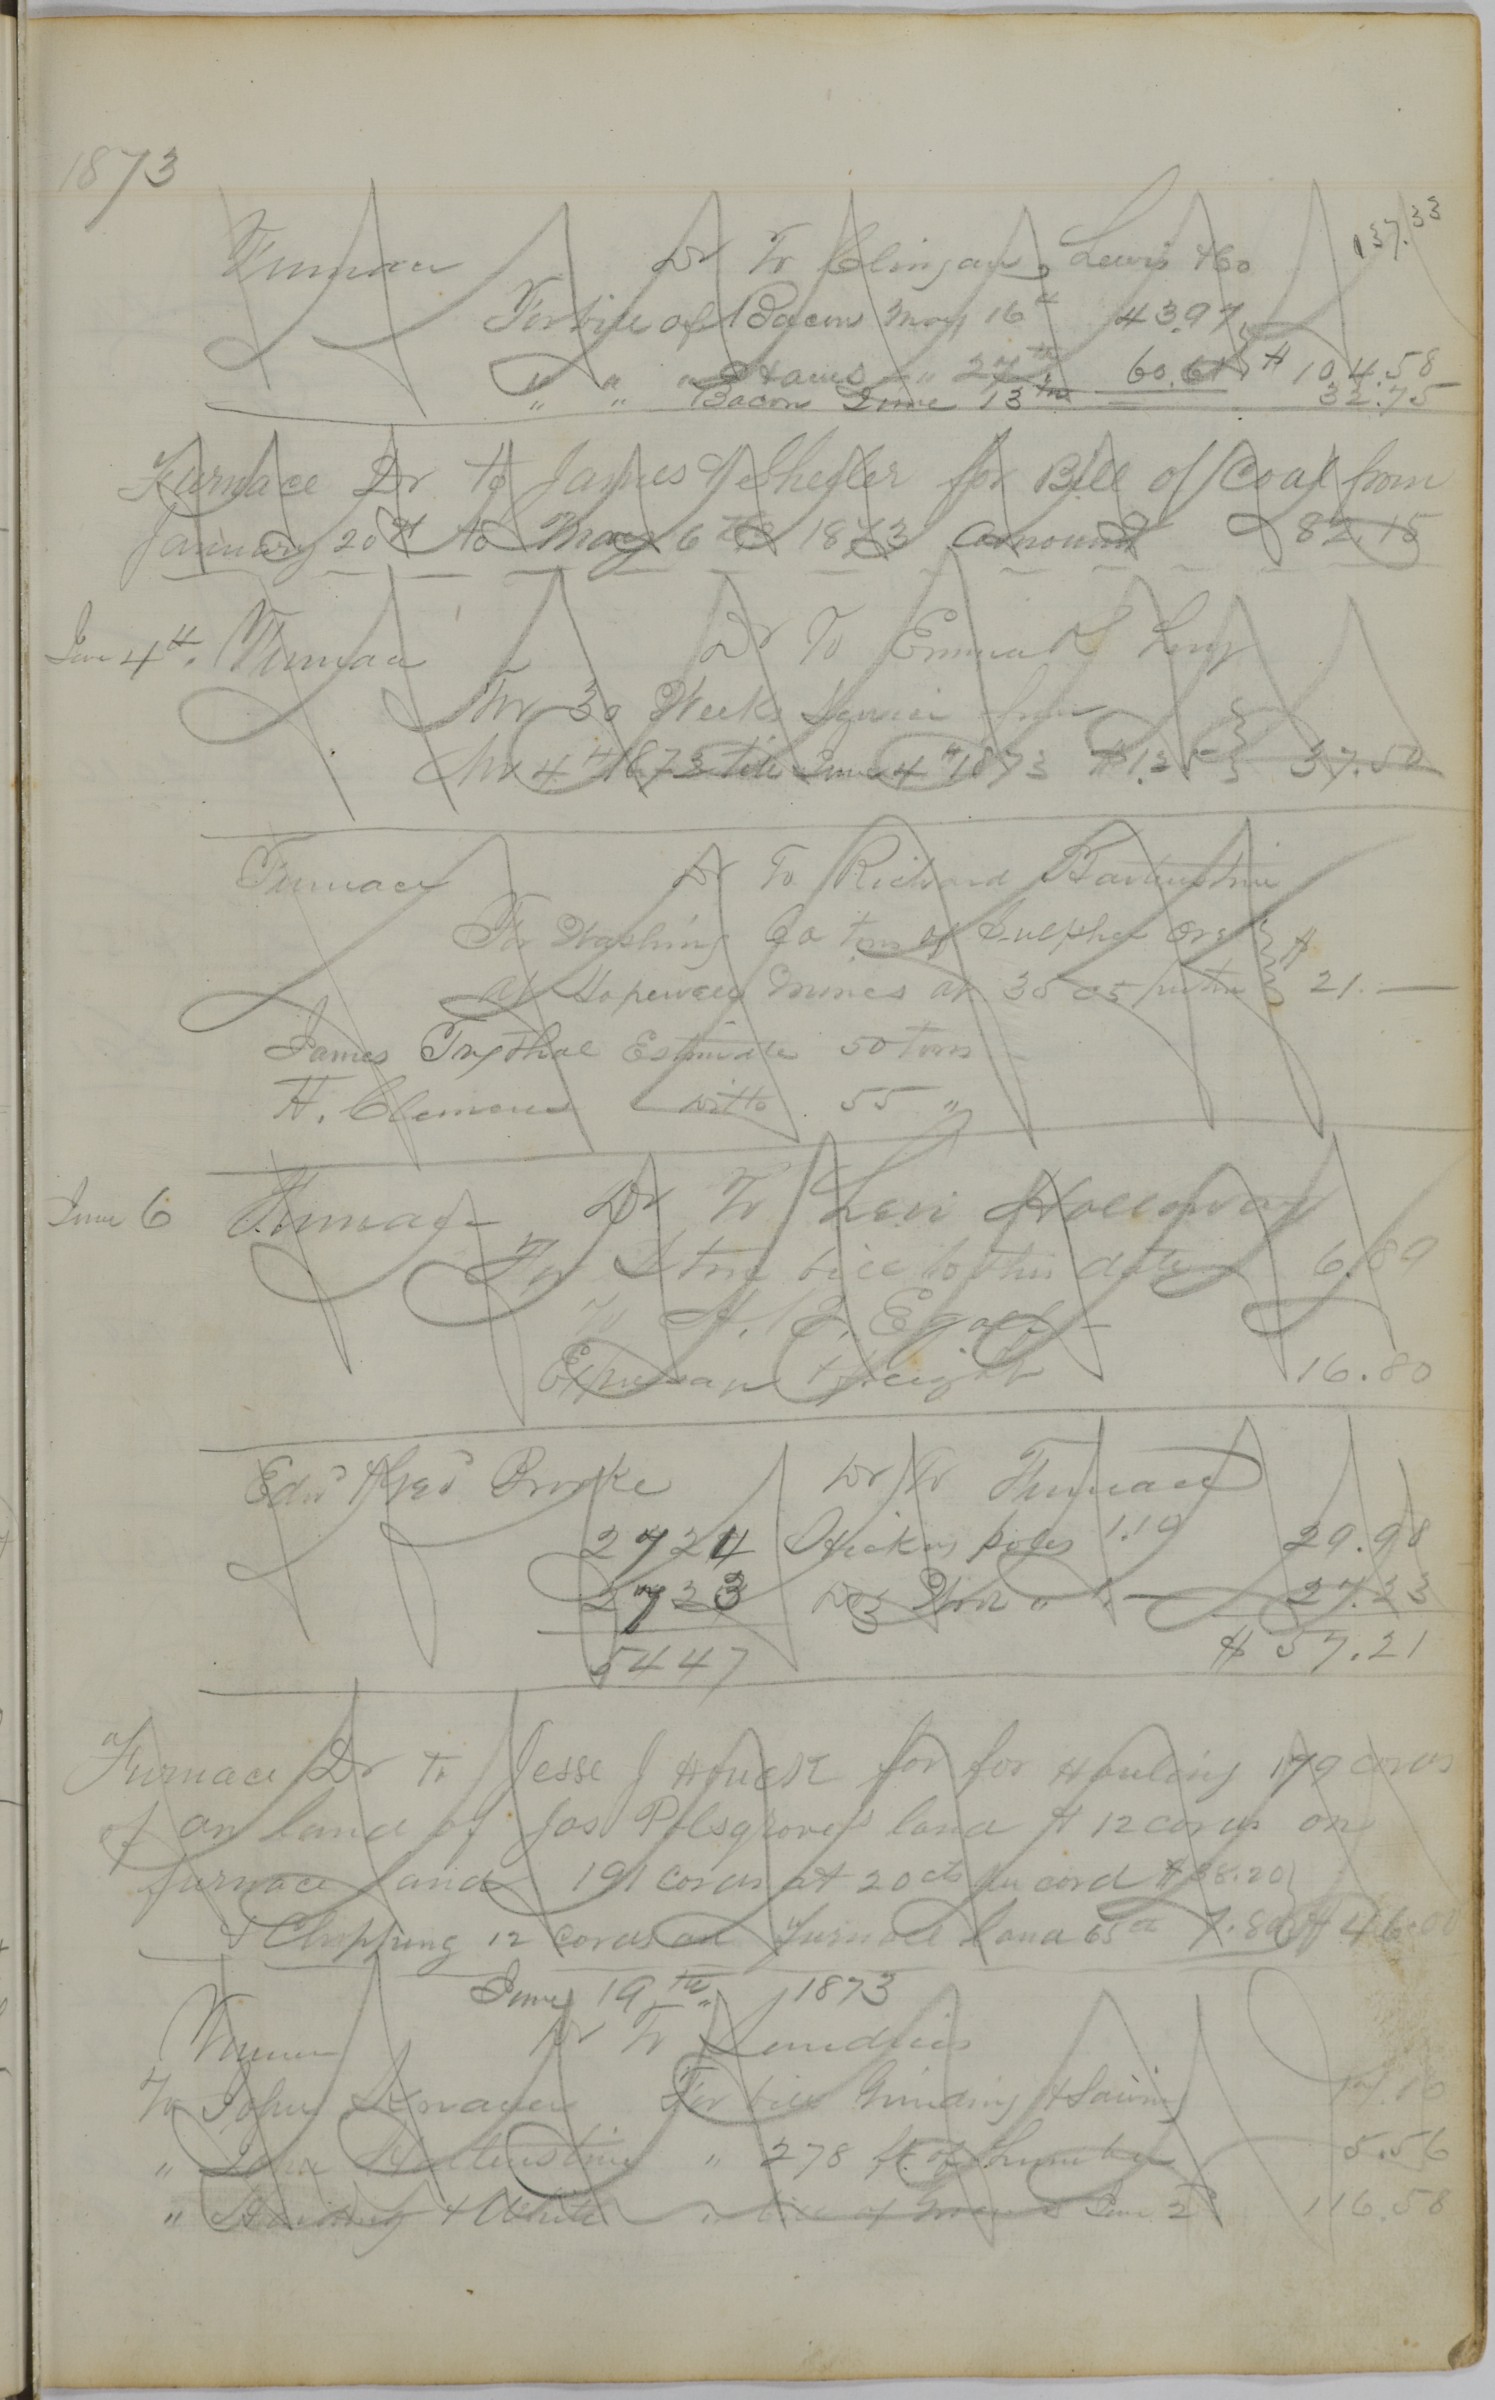 1873
137.33
Furnace Dr To Clingan, Lewis & Co
For bill of Bacon May 16th 43.97
" " " Hams " 27th 60.61 $ 104.58
" " Bacon June 13th 32.75
Furnace Dr to James Y Sheeler for Bill of Coal from
January 20th to May 6th 1873 amount 82.15
June 4th. Furnace Dr To Emma
For 30 Weeks Service from
Nov 4th 1873 till June 4th 1873 $1.25 37.50
Furnace Dr To Richard
For Washing 60 tons of Sulpher Ore $
at Hopewell Mines at 35 cts per ton 21.—
James Trythal Estimate 50 tons
H. Clemens ditto 55 "
June 6 Furnace Dr To Levi Holloway
For Store bill to this date 6.89
To H. B. Egolf
freight 16.80
Edwd & Geo Brooke Dr To Furnace
2724 Hickory poles 1.10 29.98
2723 Do " 1.— 27.23
5447 $ 57.21
Furnace Dr to Jesse J Houck for for Hauling 179 cords
of on land of Jos Polsgroves land & 12 cords on
furnace land 191 cords at 20 cts per cord $38.20
& Chopping 12 cords on Furnace land 65 cts 7.80 $ 46.00
June 19th, 1873
Dr To Sundries
To John For bill Grinding & Sawing
" " 278 ft of Lumber 5.56
" & White " bill of June 2 116.58